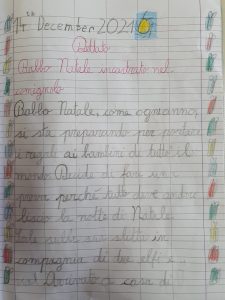 14th December 2021
Dettato
Babbo Natale incastrato nel
comignolo
Babbo Natale, come ogni anno,
si sta preparando per portare
i regali ai bambini di tutto il
mondo. Decide di fare una
prova perché tutto deve andare
liscio la notte di Natale.
Sale sulla sua slitta in
compagnia di due elfi e
via! Arrivato a casa di